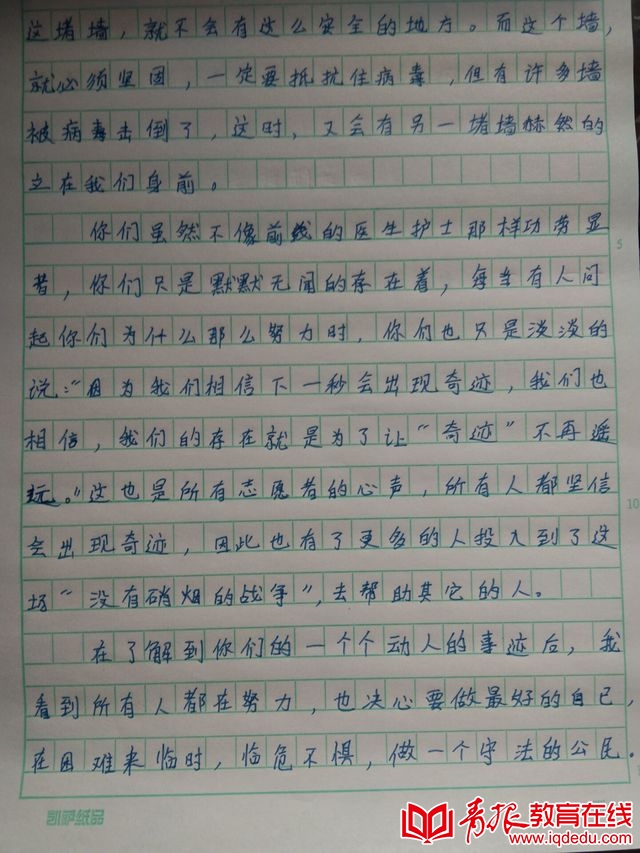 这堵墙，就不会有这么安全的地方。而这个墙，
就必须坚固，一定要抵抗住病毒，但有许多墙
被病毒击倒了，这时，又会有另一堵墙赫然的
立在我们身前。
你们虽然不像前线的医生护士那样功劳显
著，你们只是默默无闻的存在着，每当有人问
起你们为什么那么努力时，你们也只是淡淡的
说：“因为我们相信下一秒会出现奇迹，我们也
相信，我们的存在就是为了让“奇迹”不再遥
远。”这也是所有志愿者的心声，所有人都坚信
会出现奇迹，因此也有了更多的人投入到了这
场“没有硝烟的战争”，去帮助其它的人。
在了解到你们的一个个动人的事迹后，我
看到所有人都在努力，也决心要做最好的自己，
在困难来临时，临危不惧，做一个守法的公民。
5
10
凯萨纸品
青报教育在线
www.iqdedu.com